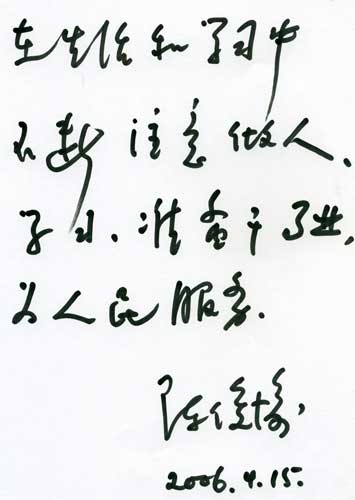 在生活和学习中
不断注意做人、
学习、准备干事业,
为人民服务.
陈俊愉
2006.4.15.